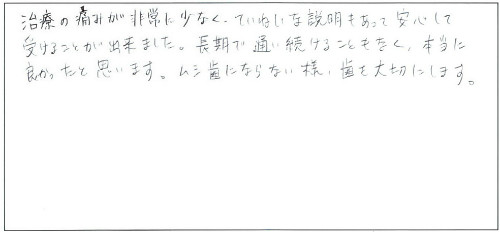 治療の痛みが非常に少なく、ていねいな説明もあって安心して
受けることが出来ました。長期で通い続けることもなく、本当に
良かったと思います。ムシ歯にならない様、歯を大切にします。